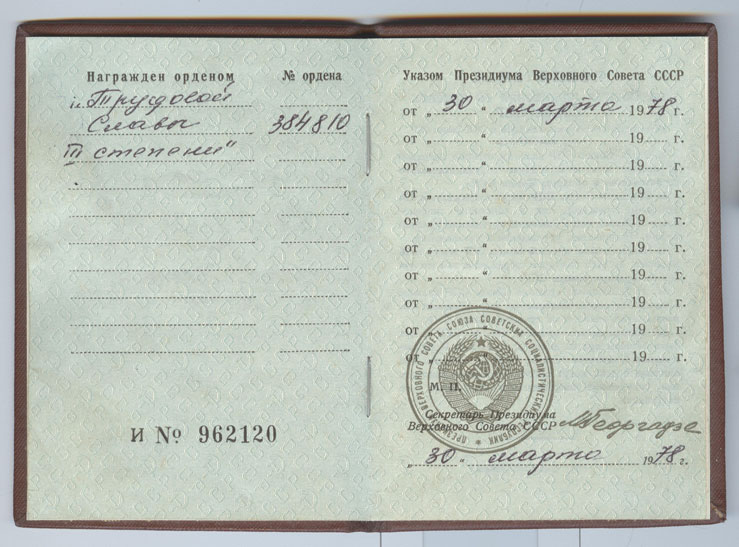 Награжден орденом
№ ордена
„Трудовой
Славы
384810
III степени"
И № 962120
Указом Президиума Верховного Совета СССР
от „30“ марта 1978 г.
от „ “ 19 г.
от „ “ 19 г.
от „ “ 19 г.
от „ “ 19 г.
от „ “ 19 г.
от „ “ 19 г.
от „ “ 19 г.
от „ “ 19 г.
от „ “ 19 г.
ПРЕЗИДИУМ ВЕРХОВНОГО СОВЕТА СОЮЗА СОВЕТСКИХ СОЦИАЛИСТИЧЕСКИХ РЕСПУБЛИК
М. П.
Секретарь Президиума
Верховного Совета СССР
МГеоргадзе
„30“ марта 1978 г.